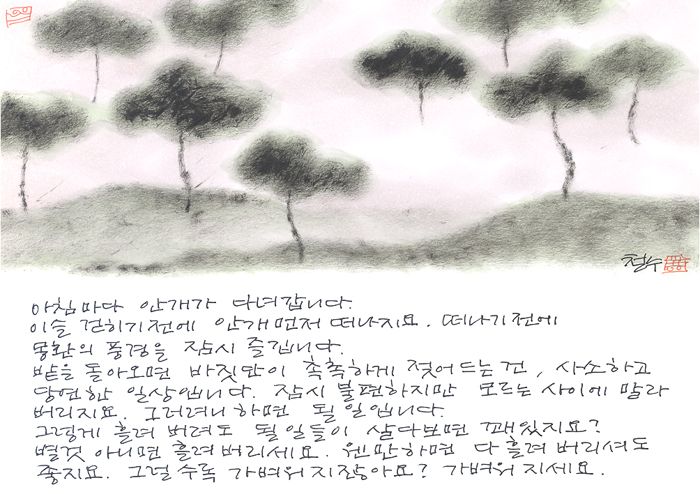 철수
아침마다 안개가 다녀갑니다.
이슬 걷히기전에 안개먼저 떠나지요. 떠나기전에
몽환의 풍경을 잠시 즐깁니다.
밭을 돌아오면 바짓단이 촉촉하게 젖어드는건, 사소하고
당연한 일상입니다. 잠시 불편하지만 모르는 사이에 말라
버리지요. 그러려니하면 될 일입니다.
그렇게 흘려 버려도 될일들이 살다보면 꽤있지요?
별것 아니면 흘려버리세요. 웬만하면 다 흘려 버리셔도
좋지요. 그럴수록 가벼워지잖아요? 가벼워 지세요.